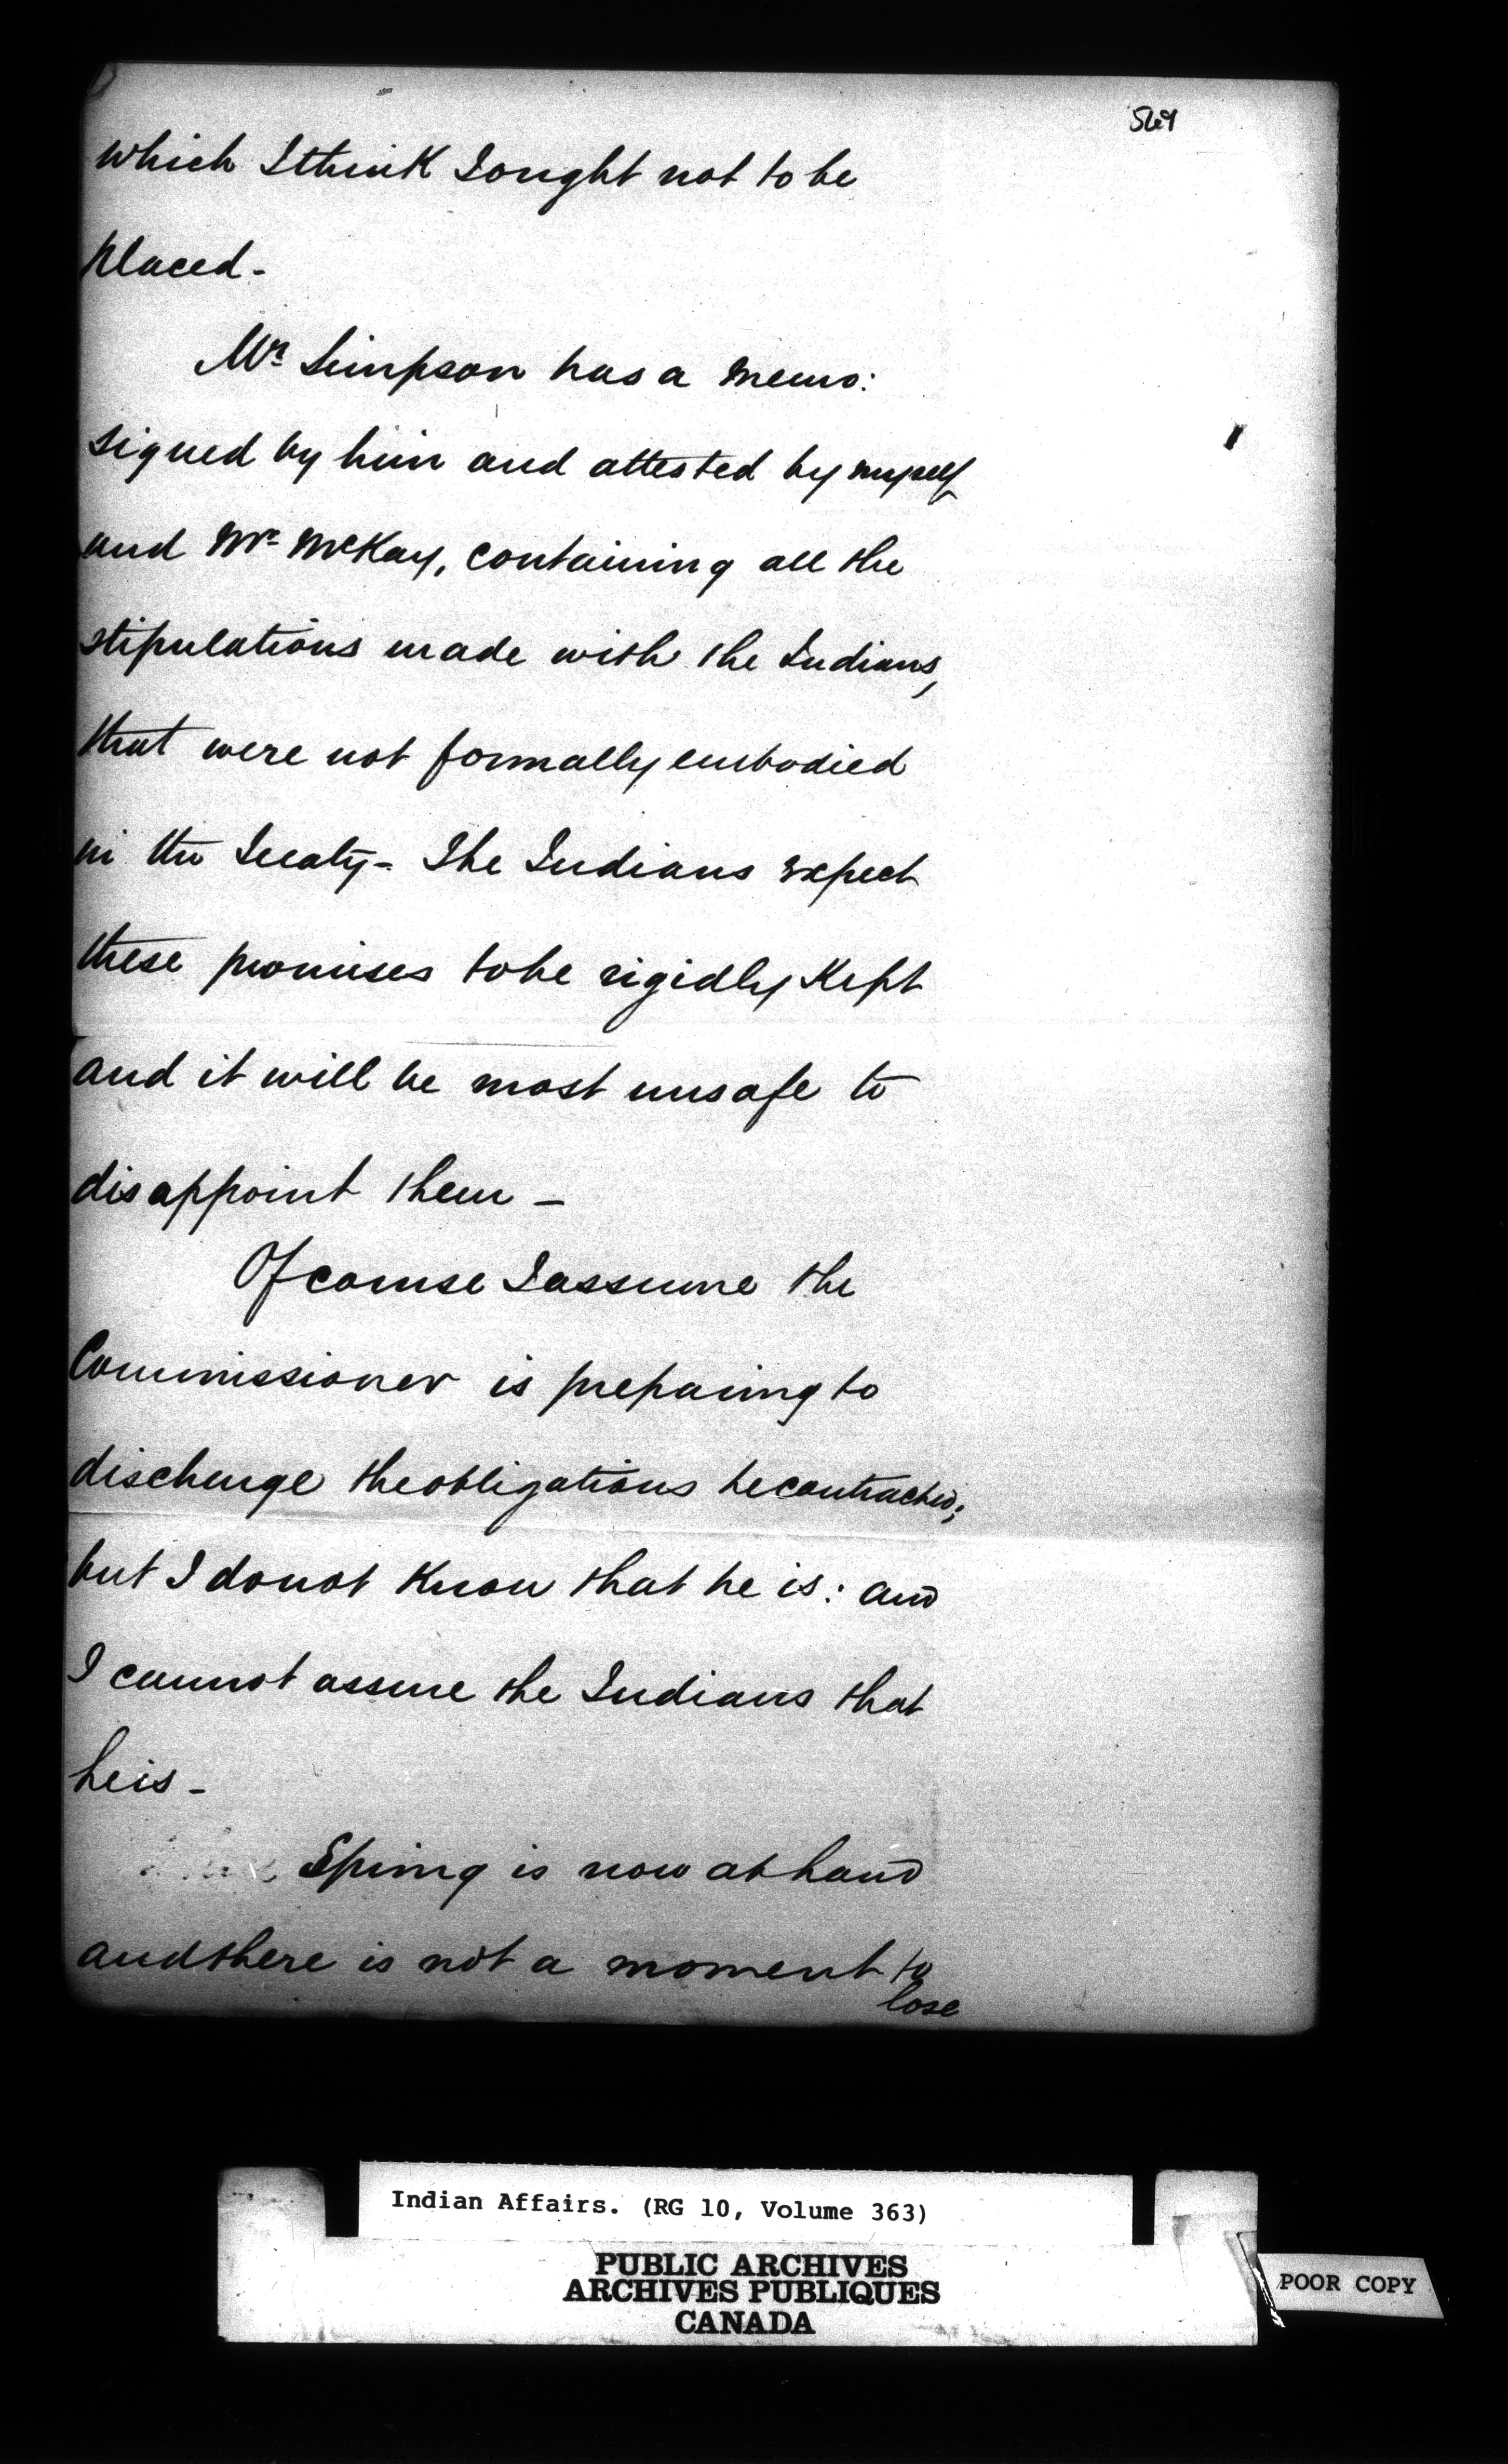 which I think I ought not to be
placed -
Mr Simpson has a memo:
signed by him and attested by myself
and Mr McKay, containing all the
stipulations made with the Indians,
that were not formally embodied
in the Treaty - The Indians expect
these promises to be rigidly kept
and it will be most unsafe to
disappoint them -
Of course I assume the
Commissioner is preparing to
discharge the obligations he contracted;
but I do not know that he is: and
I cannot assure the Indians that
he is -
Spring is now at hand
and there is not a moment to
lose
Indian Affairs. (RG 10, Volume 363)
PUBLIC ARCHIVES
ARCHIVES PUBLIQUES
CANADA
POOR COPY